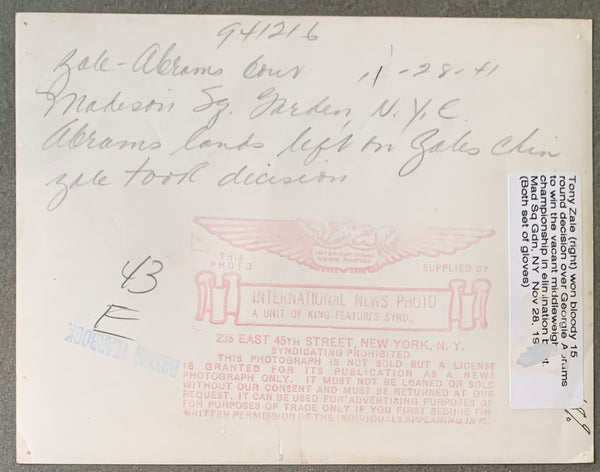 941216
Zale-Abrams bout 11-28-41
Madison Sq. Garden, N.Y.C.
Abrams lands left on Zales chin
Zale took dicision
43
E
BOXING YEARBOOK
THIS
PHOTO
INTERNATIONAL
NEWS PHOTOS
SUPPLIED BY
INTERNATIONAL NEWS PHOTO
A UNIT OF KING FEATURES SYND.
235 EAST 45TH STREET, NEW YORK, N. Y.
SYNDICATING PROHIBITED
THIS PHOTOGRAPH IS NOT SOLD BUT A LICENSE
IS GRANTED FOR ITS PUBLICATION AS A NEWS
PHOTOGRAPH ONLY. IT MUST NOT BE LOANED OR SOLD
WITHOUT OUR CONSENT AND MUST BE RETURNED AT OUR
REQUEST. IT CAN BE USED FOR ADVERTISING PURPOSES OR
FOR PURPOSES OF TRADE ONLY IF YOU FIRST SECURE THE
WRITTEN PERMISSION OF THE INDIVIDUALS APPEARING IN IT.
Tony Zale (right) won bloody 15
round decision over Georgie Abrams
to win the vacant middleweight
championship in elimination
Mad Sq Gdn, NY Nov 28, 19
(Both set of gloves)